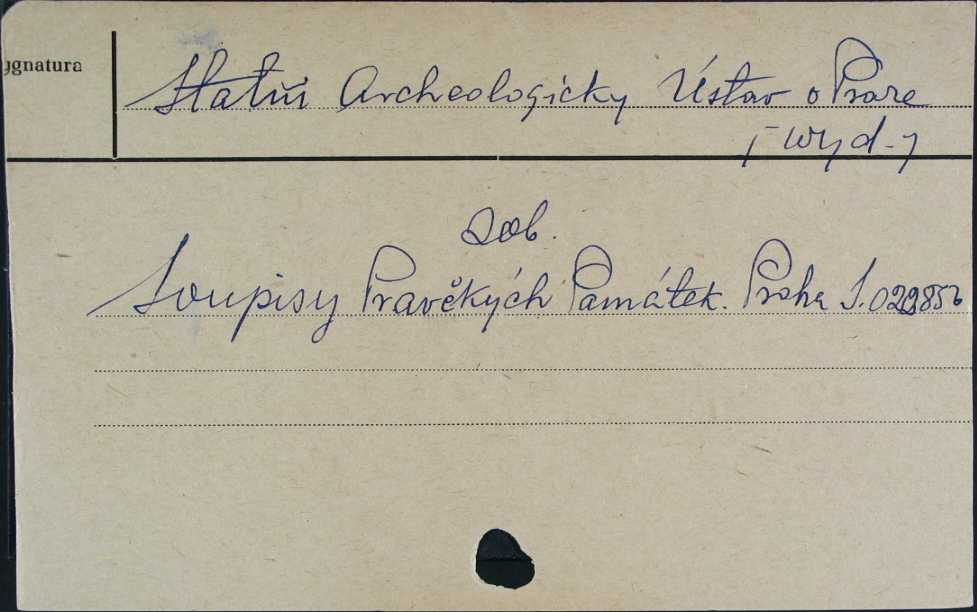 ygnatura
Statni Archeologický Ústav v Praze
[wyd.]
zob.
Soupisy Pravěkých Památek. Praha S.